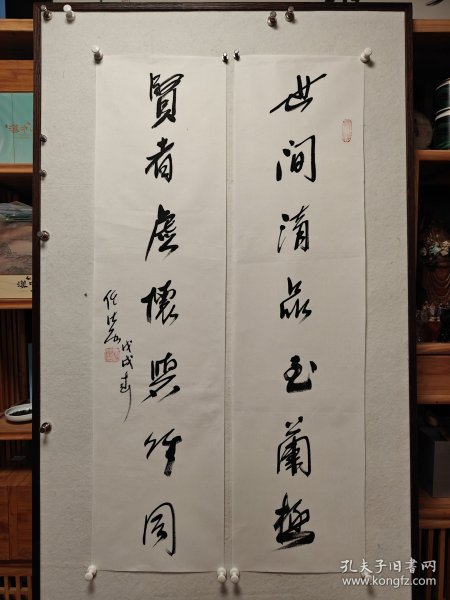 世间清品至蘭極
賢者虛懷與竹同
戊戌
孔夫子旧书网
www.kongfz.com